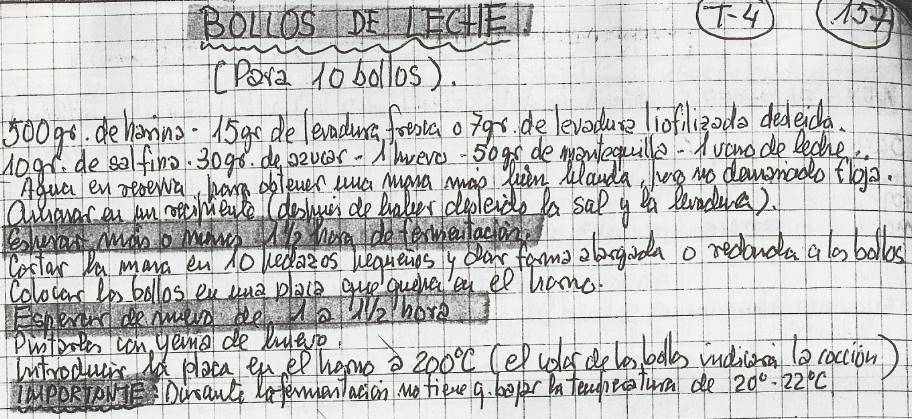 BOLLOS DE LECHE. T-4 157
(Para 10 bollos).
500grs. de harina - 15grs de levadura fresca o 7grs. de levadura liofilizada desleida.
10grs. de sal fina. 30grs. de azucar - 1 huevo - 50grs de mantequilla - 1 vaso de leche.
Agua en reserva, para obtener una masa más bien blanda, pero no demasiado floja.
Amasar en un recipiente (después de haber desleido la sal y la levadura).
Esperar más o menos 1 1/2 hora de fermentación.
Cortar la masa en 10 pedazos pequeños y dar forma alargada o redonda a los bollos
Colocar los bollos en una placa que quepa en el horno.
Esperar de nuevo de 1 a 1 1/2 hora
Pintarlos con yema de huevo.
Introducir la placa en el horno a 200ºC (el color de los bollos indicará la cocción)
IMPORTANTE: Durante la fermentación no tiene q. bajar la temperatura de 20º-22ºC